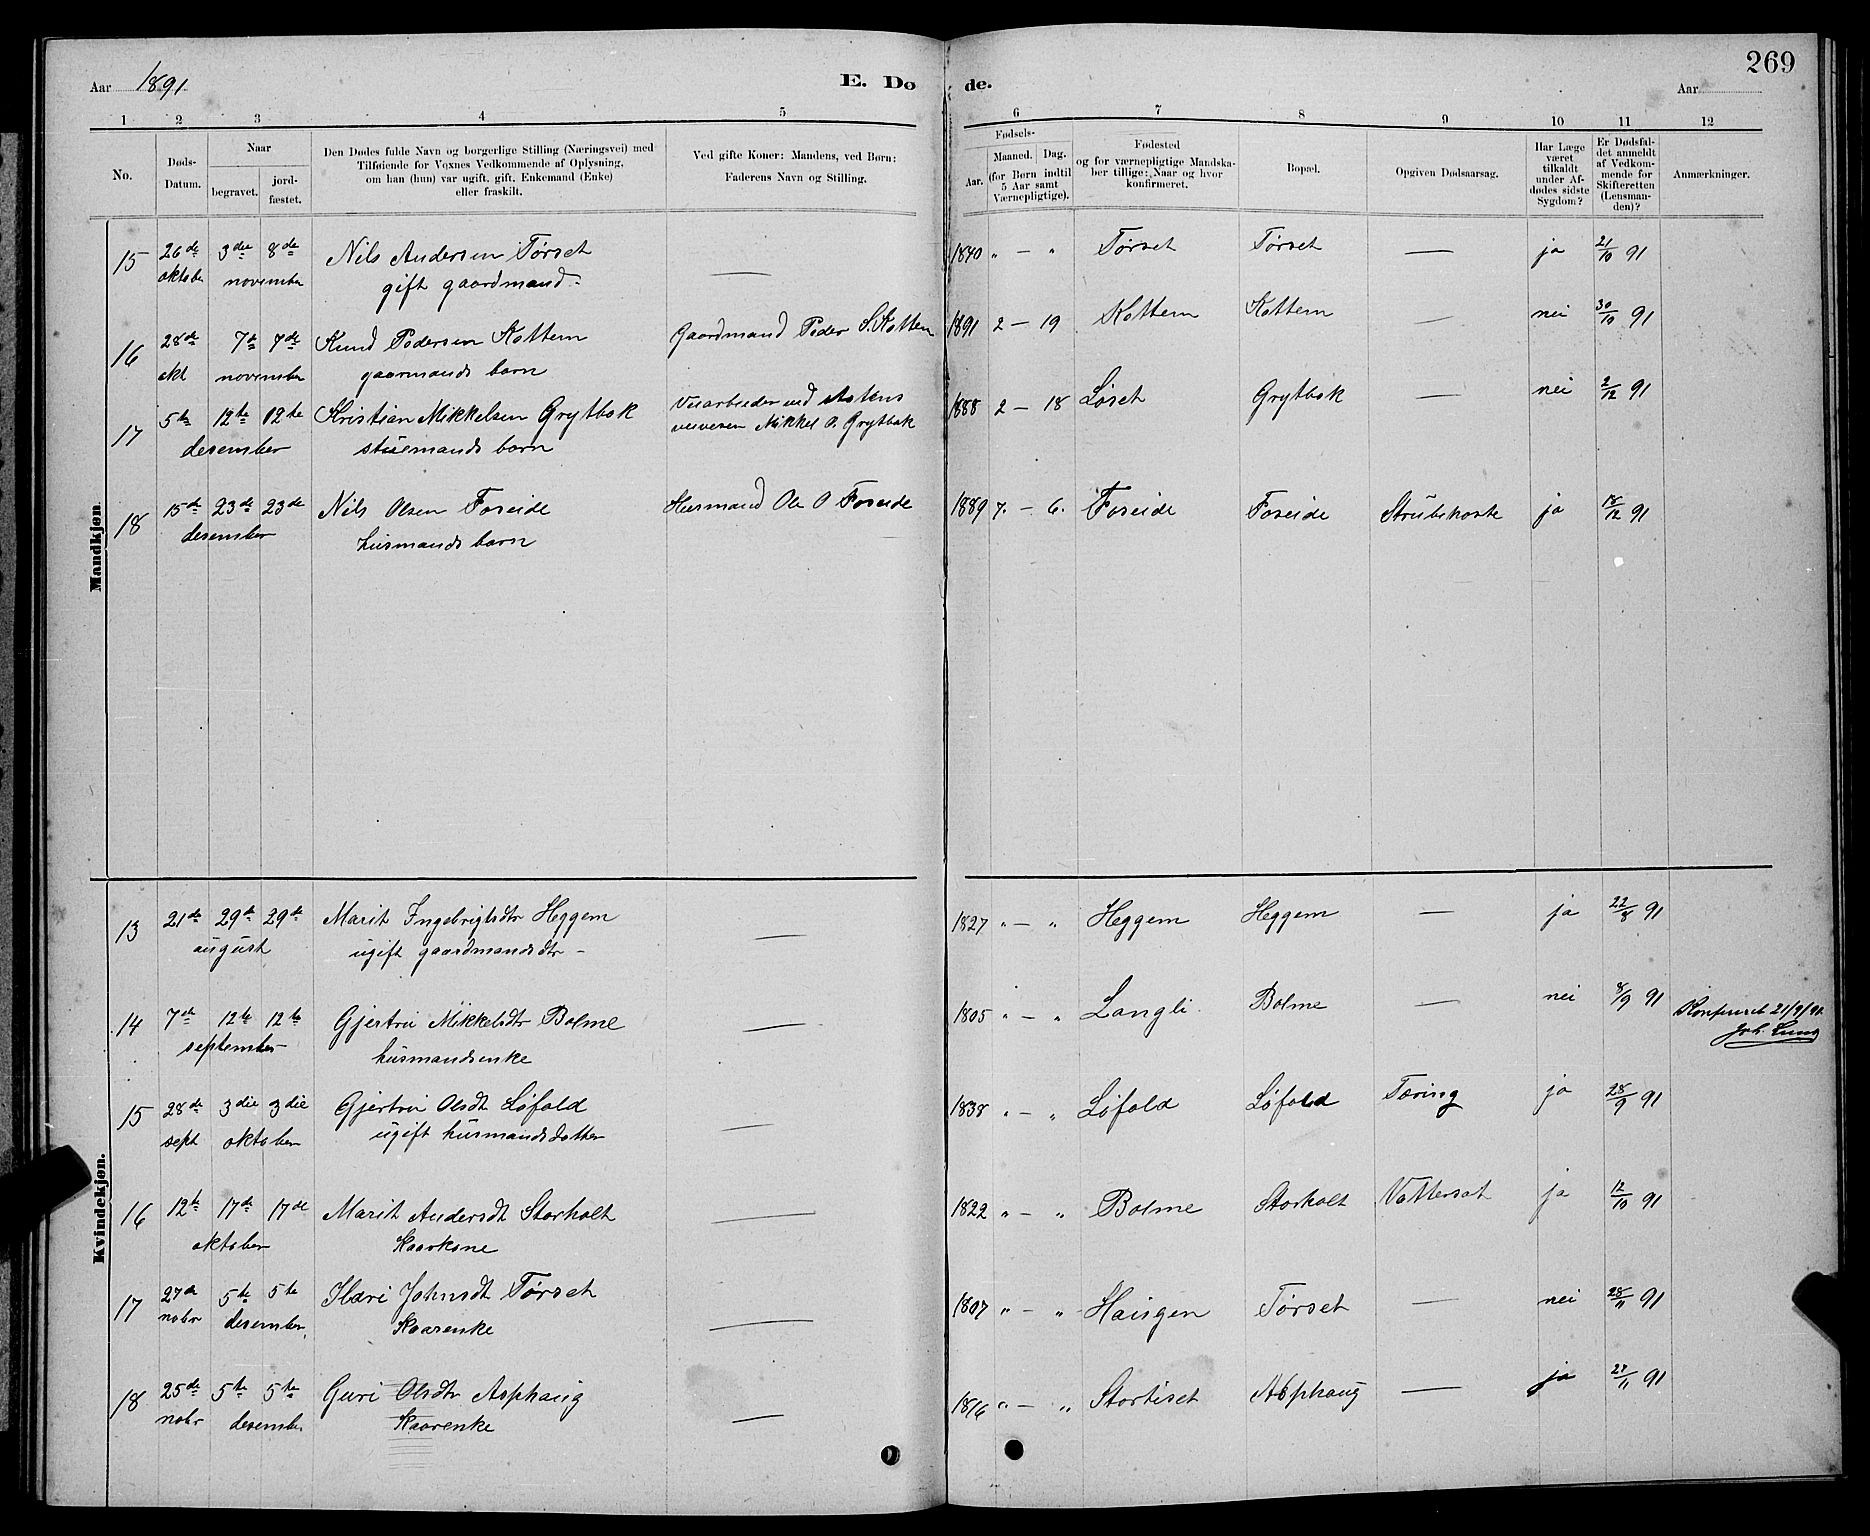 269
Aar 1891. E. Dø de. Aar
1 2 3 4 5 6 7 8 9 10 11 12
No.
Døds-
Datum.
Naar
begravet.
jord-
fæstet.
Den Dødes fulde Navn og borgerlige Stilling (Næringsvei) med
Tilføiende for Voxnes Vedkommende af Oplysning,
om han (hun) var ugift, gift, Enkemand (Enke)
eller fraskilt.
Ved gifte Koner: Mandens, ved Børn:
Faderens Navn og Stilling.
Fødsels-
Aar.
Maaned. Dag.
(for Børn indtil
5 Aar samt
Værnepligtige).
Fødested
og for værnepligtige Mandska-
ber tillige: Naar og hvor
konfirmeret.
Bopæl.
Opgiven Dødsaarsag.
Har Læge
været
tilkaldt
under Af-
dødes sidste
Sygdom?
Er Dødsfal-
det anmeldt
af Vedkom-
mende for
Skifteretten
(Lensman-
den)?
Anmærkninger.
Mandkjøn.
15 26de 3die 8de Nils Andersen Tørset — 1840 „ — „ Tørset Tørset — ja 21/10 91
oktober november gift gaardmand -
16 28de 7de 7de Knud Pedersen Kottem Gaardmand Peder S. Kottem 1891 2 — 19 Kottem Kottem — nei 30/10 91
okt november gaarmands barn
17 5te 12te 12te Kristian Mikkelsen Grytbak Veiarbeider ved statens 1888 2 — 18 Løset Grytbak — nei 2/12 91
desember stuemands barn veivesen Mikkel O. Grytbak
18 15de 23de 23de Nils Olsen Foseide Husmand Ole O Foseide 1889 7. — 6. Foseide Foseide Strubehoste ja 18/12 91
desember husmands barn
Kvindekjøn.
13 21de 29de 29de Marit Ingebrigtsdtr Heggem — 1827 „ — „ Heggem Heggem — ja 22/8 91
august ugift gaardmandsdtr -
14 7de 12te 12te Gjertru Mikkelsdtr Bolme — 1805 „ — „ Langli. Bolme — nei 8/9 91 Konfereret 21/9/91.
september husmandsenke Joh. Lund
15 28de 3die 3die Gjertru Olsdt Løfald — 1838 „ — „ Løfald Løfald Tæring ja 28/9 91
sept oktober ugift husmandsdatter
16 12te 17de 17de Marit Andersdt Storholt — 1822 „ — „ Bolme Storholt Vattersot ja 12/10 91
oktober Kaarkone
17 27de 5te 5te Kari Johnsdt Tørset — 1807 „ — „ Haugen Tørset — nei 28/11 91
nobr desember. Kaarenke
18 25de 5te 5te Guri Olsdtr Asphaug — 1816 „ — „ Stortiset Asphaug — ja 27/11 91
nobr desember Kaarenke